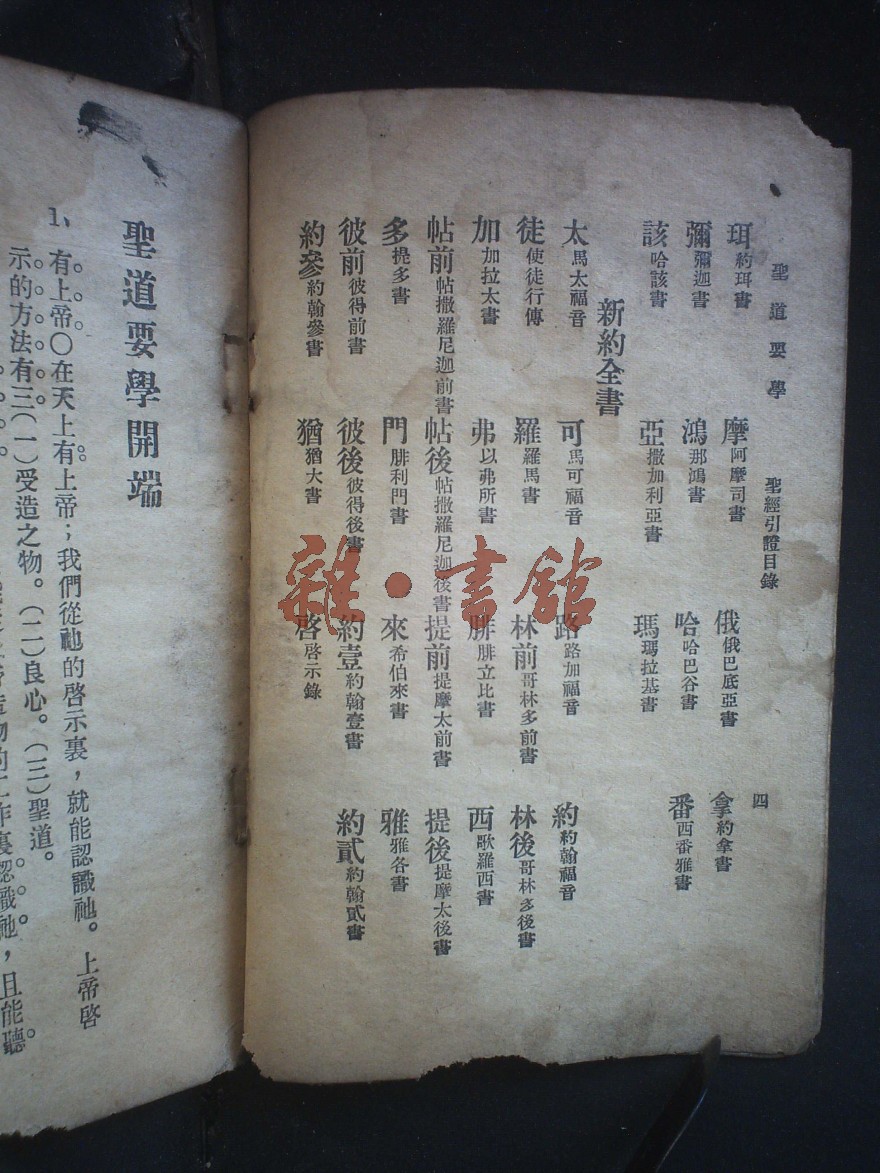 聖道要學 聖經引證目錄 四
珥約珥書 摩阿摩司書 俄俄巴底亞書 拿約拿書
彌彌迦書 鴻那鴻書 哈哈巴谷書 番西番雅書
該哈該書 亞撒加利亞書 瑪瑪拉基書
新約全書
太馬太福音 可馬可福音 路路加福音 約約翰福音
徒使徒行傳 羅羅馬書 林前哥林多前書 林後哥林多後書
加加拉太書 弗以弗所書 腓腓立比書 西歌羅西書
帖前帖撒羅尼迦前書 帖後帖撒羅尼迦後書 提前提摩太前書 提後提摩太後書
多提多書 門腓利門書 來希伯來書 雅雅各書
彼前彼得前書 彼後彼得後書 約壹約翰壹書 約貳約翰貳書
約參約翰參書 猶猶大書 啓啓示錄
聖道要學開端
1、有上帝〇在天上有上帝；我們從祂的啓示裏，就能認識祂。上帝啓
示的方法有三（一）受造之物。（二）良心。（三）聖道。
雜·書館